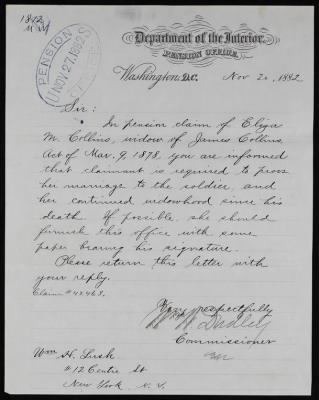 1812
PENSION
U NOV 27 1882 S
OFFICE
Department of the Interior,
PENSION OFFICE,
Washington, D.C. Nov 20, 1882
Sir:
In pension claim of Eliza
M. Collins, widow of James Collins
Act of Mar. 9, 1878, you are informed
that claimant is required to prove
her marriage to the soldier, and
her continued widowhood since his
death. If possible she should
furnish this office with some
paper bearing his signature.
Please return this letter with
your reply.
Claim #42463.
Very respectfully
Dudley
Commissioner
Wm H. Lusk
#12 Centre St
New York. N. Y.